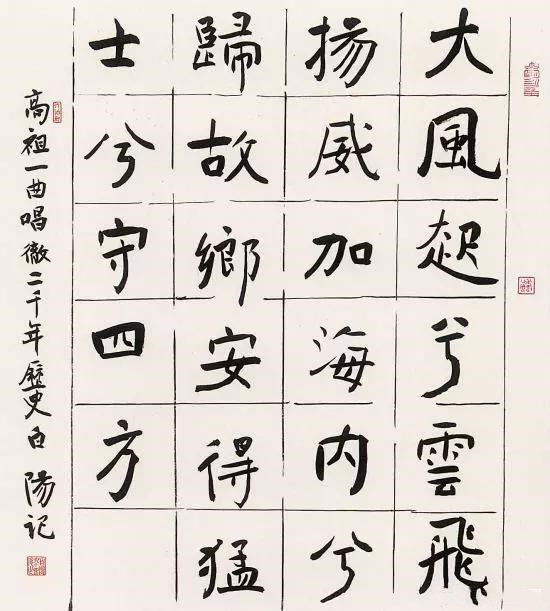 大風起兮雲飛
揚威加海内兮
歸故鄉安得猛
士兮守四方
高祖一曲唱徹二千年歷史白陽記